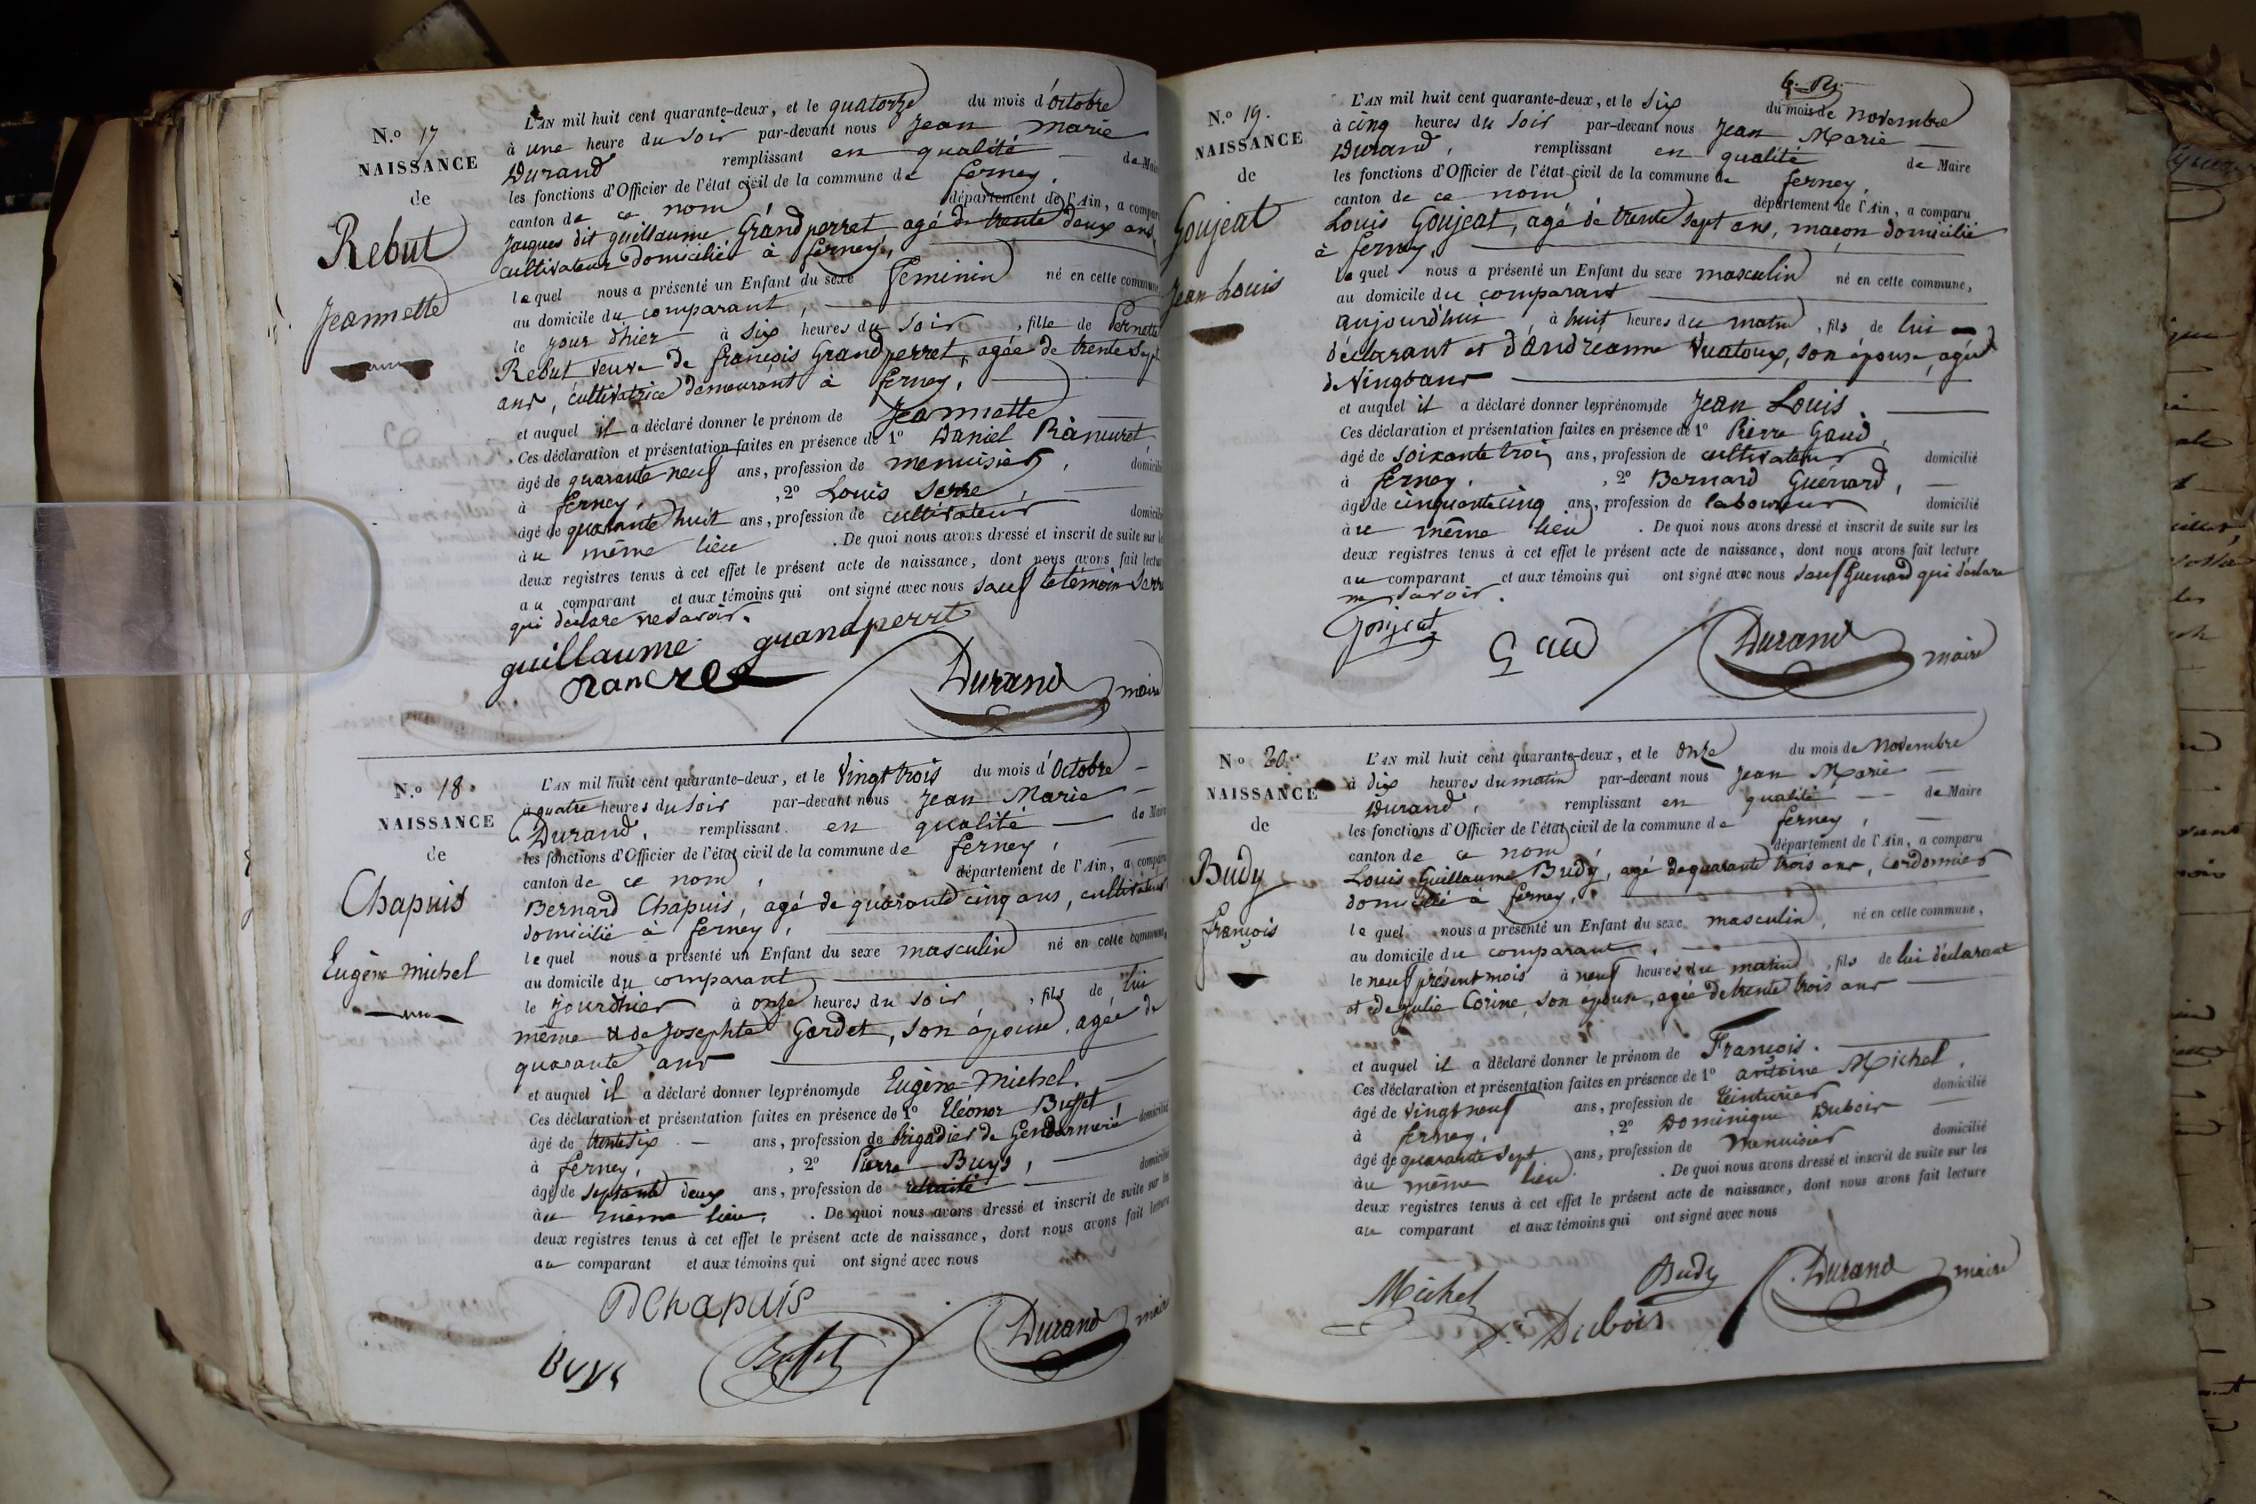 N.o 17
NAISSANCE
de
Rebut
Jeannette
L'AN mil huit cent quarante-deux, et le quatorze du mois d'octobre
à une heure du soir par-devant nous Jean Marie
Durand remplissant en qualité de Maire
les fonctions d'Officier de l'état civil de la commune de ferney,
canton de ce nom département de l'Ain, a comparu
Jacques dit guillaume Grandperret, agé de trente deux ans,
cultivateur domicilié à ferney,
lequel nous a présenté un Enfant du sexe feminin né en cette commune
au domicile du comparant,
le jour d'hier à six heures du soir, fille de Pernette
Rebut veuve de françois Grandperret, agée de trente sept
ans, cultivatrice demeurant à ferney,
et auquel il a déclaré donner le prénom de Jeannette
Ces déclaration et présentation faites en présence de 1o Daniel
âgé de quarante neuf ans, profession de menuisier, domicilié
à ferney, 2o Louis Serre,
âgé de quarante huit ans, profession de cultivateur domicilié
au même lieu. De quoi nous avons dressé et inscrit de suite sur les
deux registres tenus à cet effet le présent acte de naissance, dont nous avons fait lecture
au comparant et aux témoins qui ont signé avec nous sauf le témoin Serre
qui déclare ne savoir.
guillaume grandperrt
Durand maire
N.o 18.
NAISSANCE
de
Chapuis
Eugène Michel
L'AN mil huit cent quarante-deux, et le vingt trois du mois d'octobre
à quatre heures du soir par-devant nous Jean Marie
Durand, remplissant en qualité de Maire
les fonctions d'Officier de l'état civil de la commune de ferney,
canton de ce nom, département de l'Ain, a comparu
Bernard Chapuis, agé de quarante cinq ans, cultivateur
domicilié à ferney,
lequel nous a présenté un Enfant du sexe masculin né en cette commune,
au domicile du comparant
le jour d'hier à onze heures du soir, fils de lui
même et de Josephte Gardet, son épouse, agée de
quarante ans
et auquel il a déclaré donner les prénoms de Eugène-Michel.
Ces déclaration et présentation faites en présence de 1o Eléonor Buffet
âgé de trente six ans, profession de brigadier de Gendarmerie domicilié
à ferney, 2o Pierre Buys,
âgé de septante deux ans, profession de retraité domicilié
au même lieu. De quoi nous avons dressé et inscrit de suite sur les
deux registres tenus à cet effet le présent acte de naissance, dont nous avons fait lecture
au comparant et aux témoins qui ont signé avec nous
BChapuis
Buys Buffet Durand maire
N.o 19.
NAISSANCE
de
Goujeat
Jean Louis
L'AN mil huit cent quarante-deux, et le six du mois de novembre
à cinq heures du soir par-devant nous Jean Marie
Durand, remplissant en qualité de Maire
les fonctions d'Officier de l'état civil de la commune de ferney,
canton de ce nom département de l'Ain, a comparu
Louis Goujeat, agé de trente sept ans, maçon domicilié
à ferney,
lequel nous a présenté un Enfant du sexe masculin né en cette commune,
au domicile du comparant
aujourdhui, à huit heures du matin, fils de lui
déclarant et d'andréanne Vuatoux, son épouse, agée
de vingt ans
et auquel il a déclaré donner les prénoms de Jean Louis.
Ces déclaration et présentation faites en présence de 1o Pierre Gaud,
âgé de soixante trois ans, profession de cultivateur domicilié
à ferney, 2o Bernard Guenard,
âgé de cinquante cinq ans, profession de laboureur domicilié
au même lieu. De quoi nous avons dressé et inscrit de suite sur les
deux registres tenus à cet effet le présent acte de naissance, dont nous avons fait lecture
au comparant et aux témoins qui ont signé avec nous sauf Guenard qui déclare
ne savoir.
Goujeat Gaud Durand maire
No 20.
NAISSANCE
de
Budy
françois
L'AN mil huit cent quarante-deux, et le onze du mois de novembre
à dix heures du matin par-devant nous Jean Marie
Durand, remplissant en qualité de Maire
les fonctions d'Officier de l'état civil de la commune de ferney,
canton de ce nom département de l'Ain, a comparu
Louis Guillaume Budy, agé de quarante trois ans, cordonnier
domicilié à ferney,
lequel nous a présenté un Enfant du sexe masculin, né en cette commune,
au domicile du comparant,
le neuf présent mois à neuf heures du matin, fils de lui déclarant
et de Julie Corine, son épouse, agée de trente trois ans
et auquel il a déclaré donner le prénom de François.
Ces déclaration et présentation faites en présence de 1o antoine Michel,
âgé de vingt neuf ans, profession de teinturier domicilié
à ferney, 2o Dominique Dubois
âgé de quarante sept ans, profession de menuisier domicilié
au même lieu. De quoi nous avons dressé et inscrit de suite sur les
deux registres tenus à cet effet le présent acte de naissance, dont nous avons fait lecture
au comparant et aux témoins qui ont signé avec nous
Michel Budy Durand maire
D. Dubois